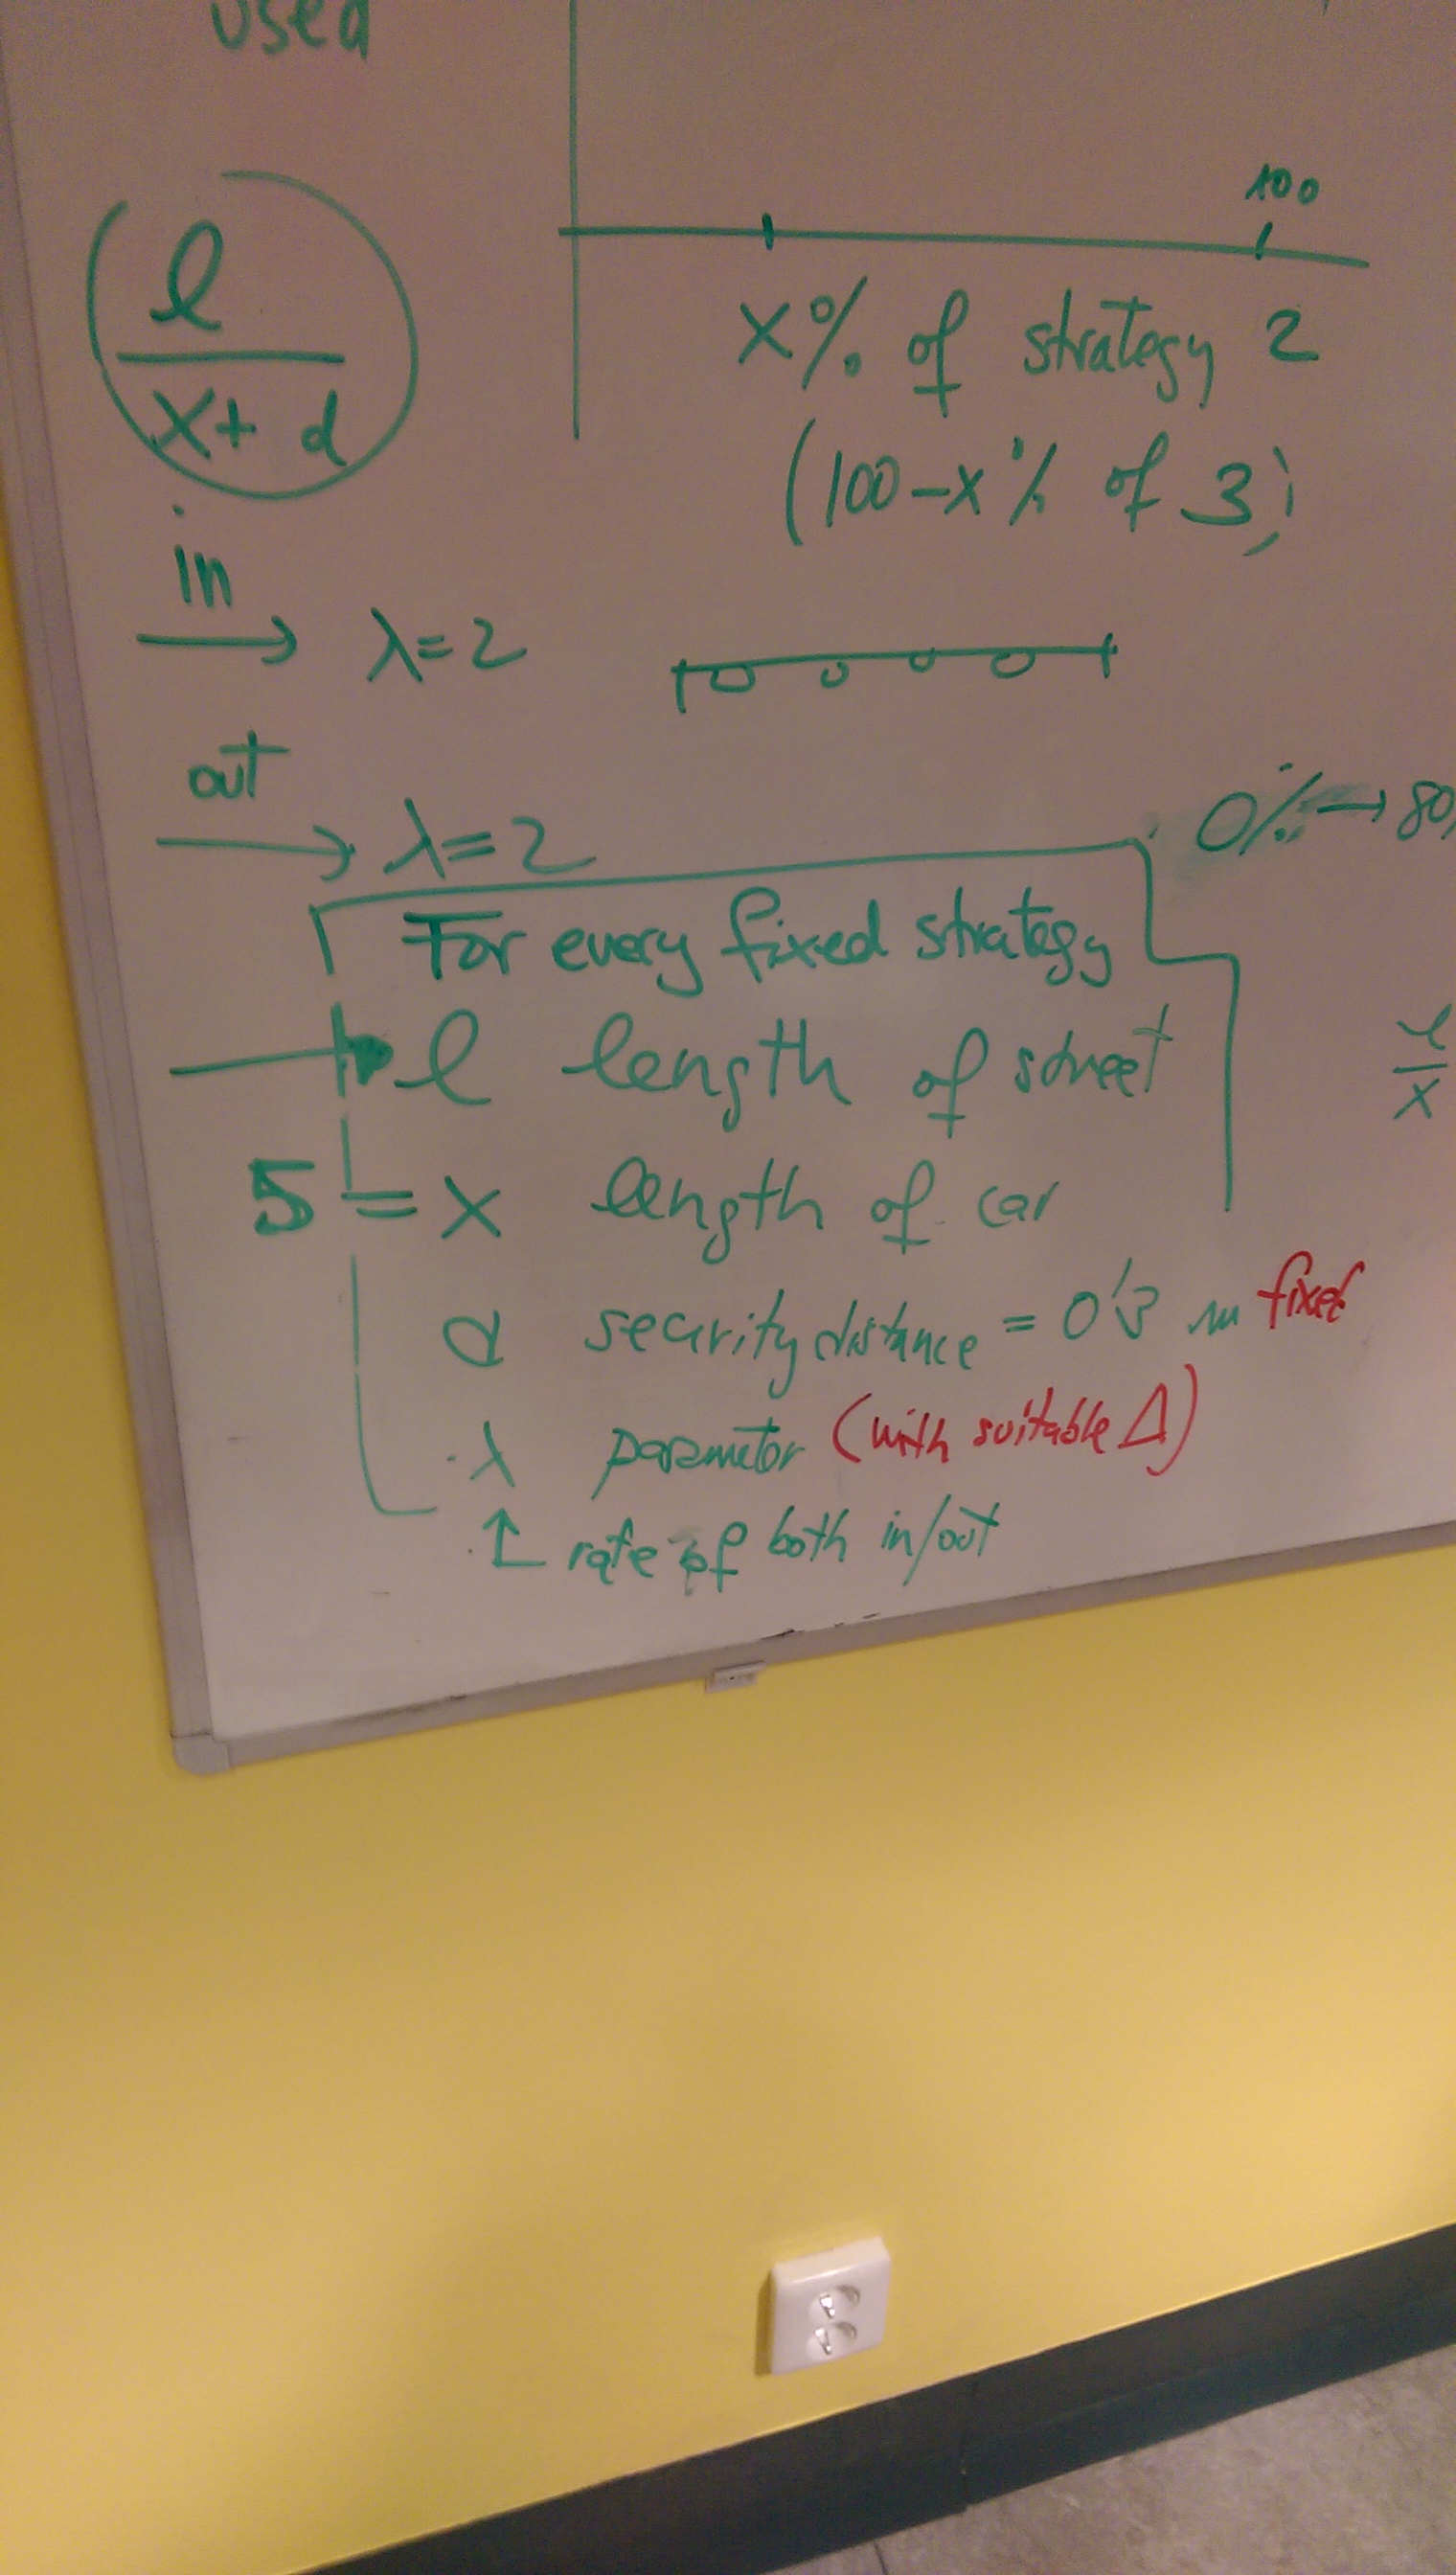 used
100
l
x + d
x% of strategy 2
(100-x% of 3)
in
→ λ=2
out
→ λ=2
0% → 80
For every fixed strategy
→ l length of street
l
x
5 = x length of car
d security distance = 0'3 m fixed
λ parameter (with suitable Δ)
↑ rate of both in/out